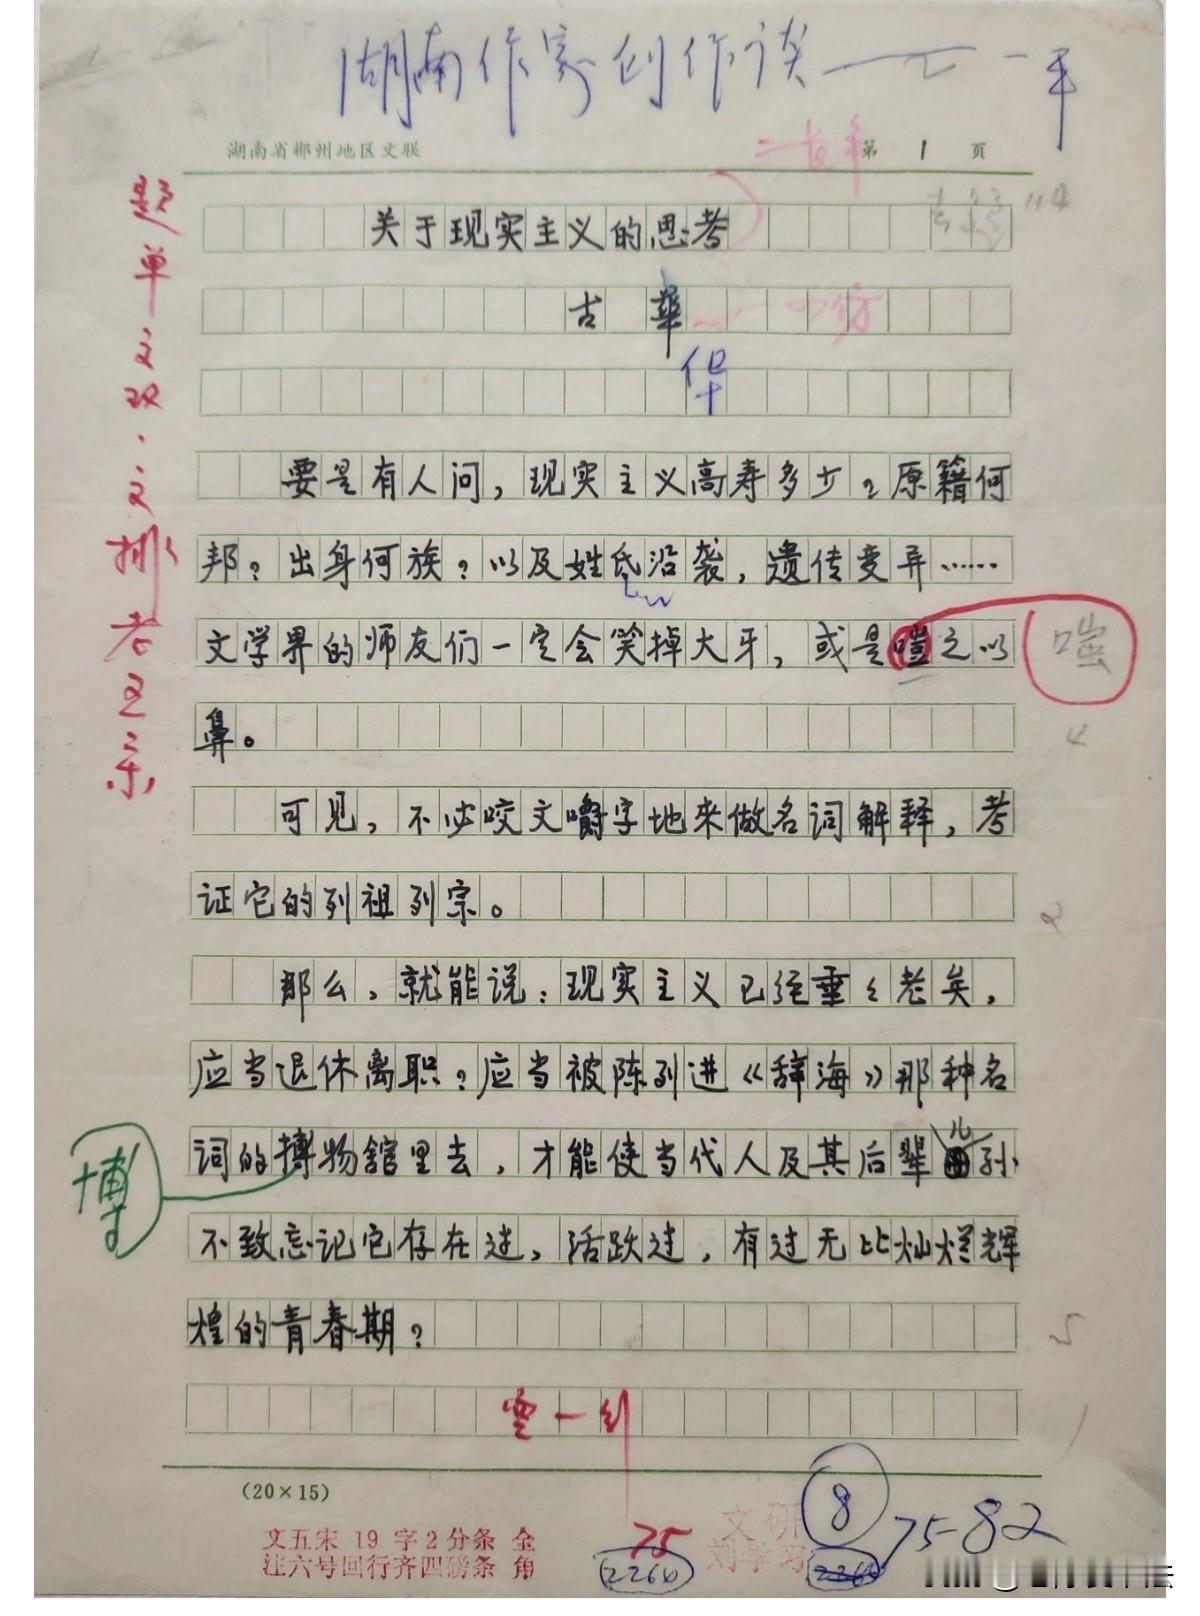 湖南作家创作谈——七一年
湖南省郴州地区文联
第 1 页
关于现实主义的思考
古 華
华
要是有人问，现实主义高寿多少？原籍何
邦？出身何族？以及姓氏沿袭，遗传变异……
文学界的师友们一定会笑掉大牙，或是嗤之以
嗤
鼻。
4
可见，不必咬文嚼字地来做名词解释，考
证它的列祖列宗。
2
那么，就能说：现实主义已经垂々老矣，
应当退休离职？应当被陈列进《辞海》那种名
词的搏物馆里去，才能使当代人及其后辈儿孙
博
不致忘记它存在过，活跃过，有过无比灿烂辉
煌的青春期？
5
空一行
(20×15)
文五宋 19 字2分条 全
注六号回行齐四磅条 角
75
2264
文研
刘学习
8
75-82